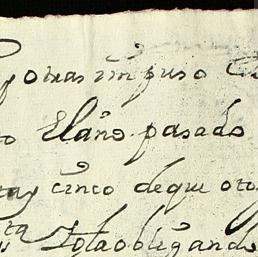 y otras impuso
to El año pasado
tay cinco deque oto
ta obligando